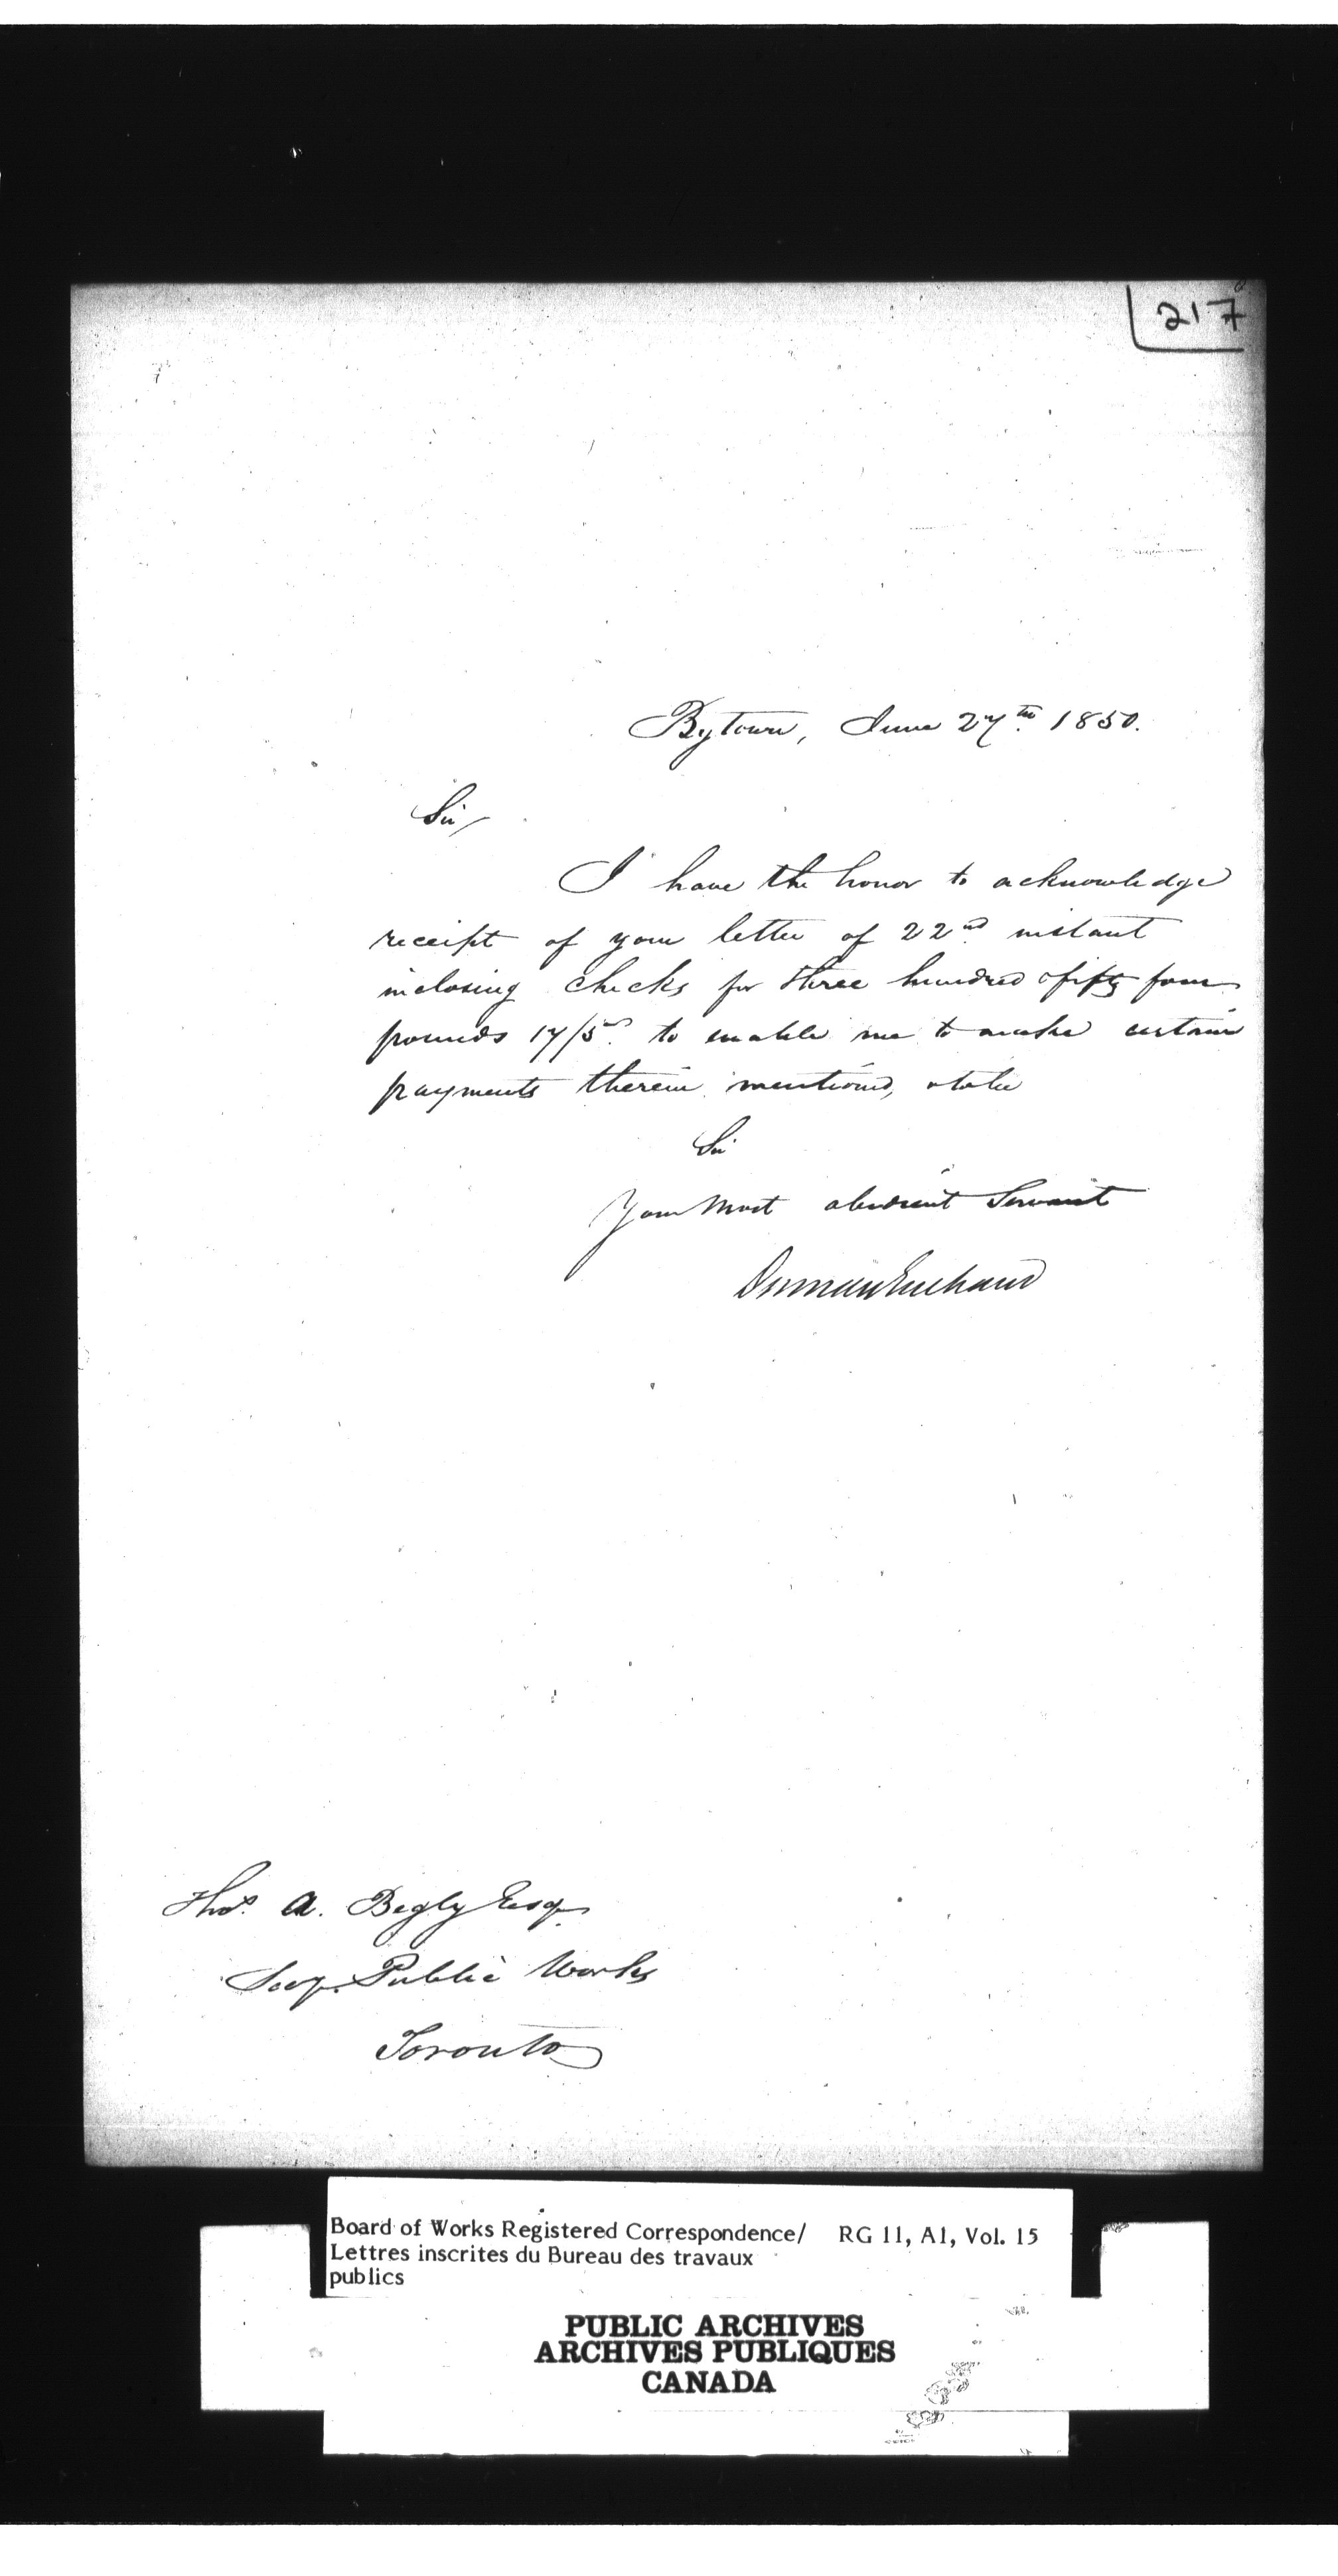 217
Bytown, June 27th 1850.
Sir/
I have the honor to acknowledge
receipt of your letter of 22nd instant
inclosing checks for three hundred & fifty four
pounds 17/5d to enable me to make certain
payments therein mentioned, & to be
Sir
Your Most obedient Servant
Thos. A. Begly Esqr.
Secy. Public Works
Toronto
Board of Works Registered Correspondence/ RG 11, A1, Vol. 15
Lettres inscrites du Bureau des travaux
publics
PUBLIC ARCHIVES
ARCHIVES PUBLIQUES
CANADA